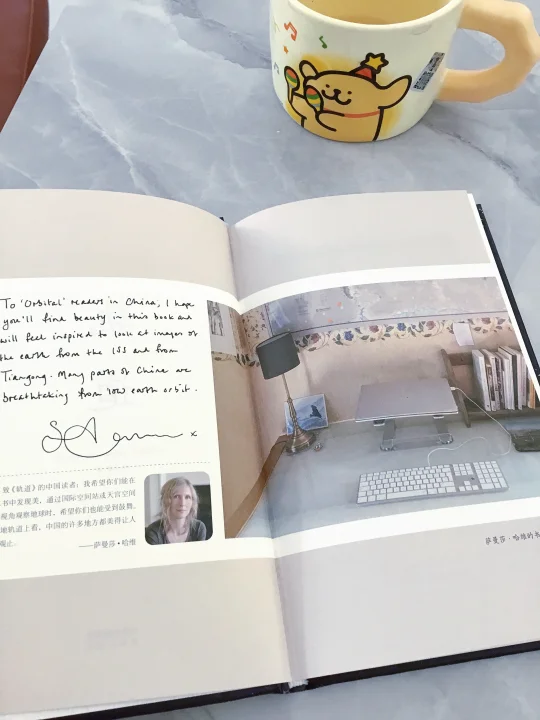 To 'Orbital' readers in China, I hope
you'll find beauty in this book and
will feel inspired to look at images of
the earth from the ISS and from
Tiangong. Many parts of China are
breathtaking from low earth orbit.
x
致《轨道》的中国读者：我希望你们能在
书中发现美，通过国际空间站或天宫空间
视角观察地球时，希望你们也能受到鼓舞。
地轨道上看，中国的许多地方都美得让人
观止。
——萨曼莎·哈维
萨曼莎·哈维的书